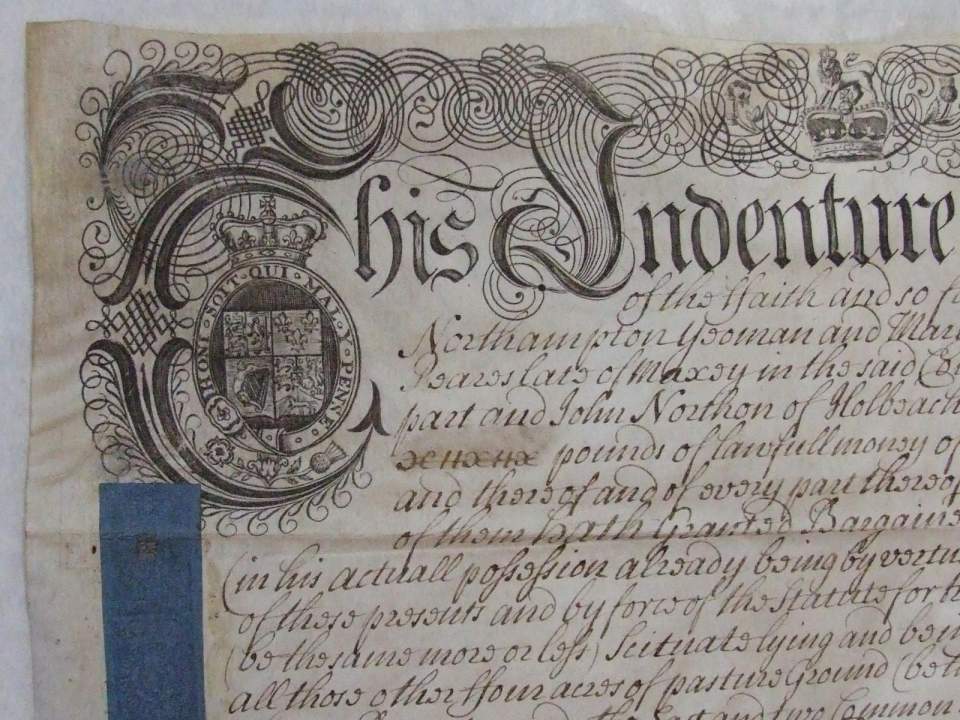 HONI · SOIT · QUI · MAL · Y · PENSE
This Indenture
of the ffaith and so f
Northampton Yeoman and Mar
Peares late of Maxey in the said Co
part and John Northon of Holbeach
pounds of lawfull money of
and thereof and of every part thereof
of them hath Granted Bargaine
(in his actuall possession already being by vertu
of these presents and by force of the Statute for t
(be the same more or less) Scituate lying and bein
all those other ffour acres of pasture Ground (be t
the East and two Common